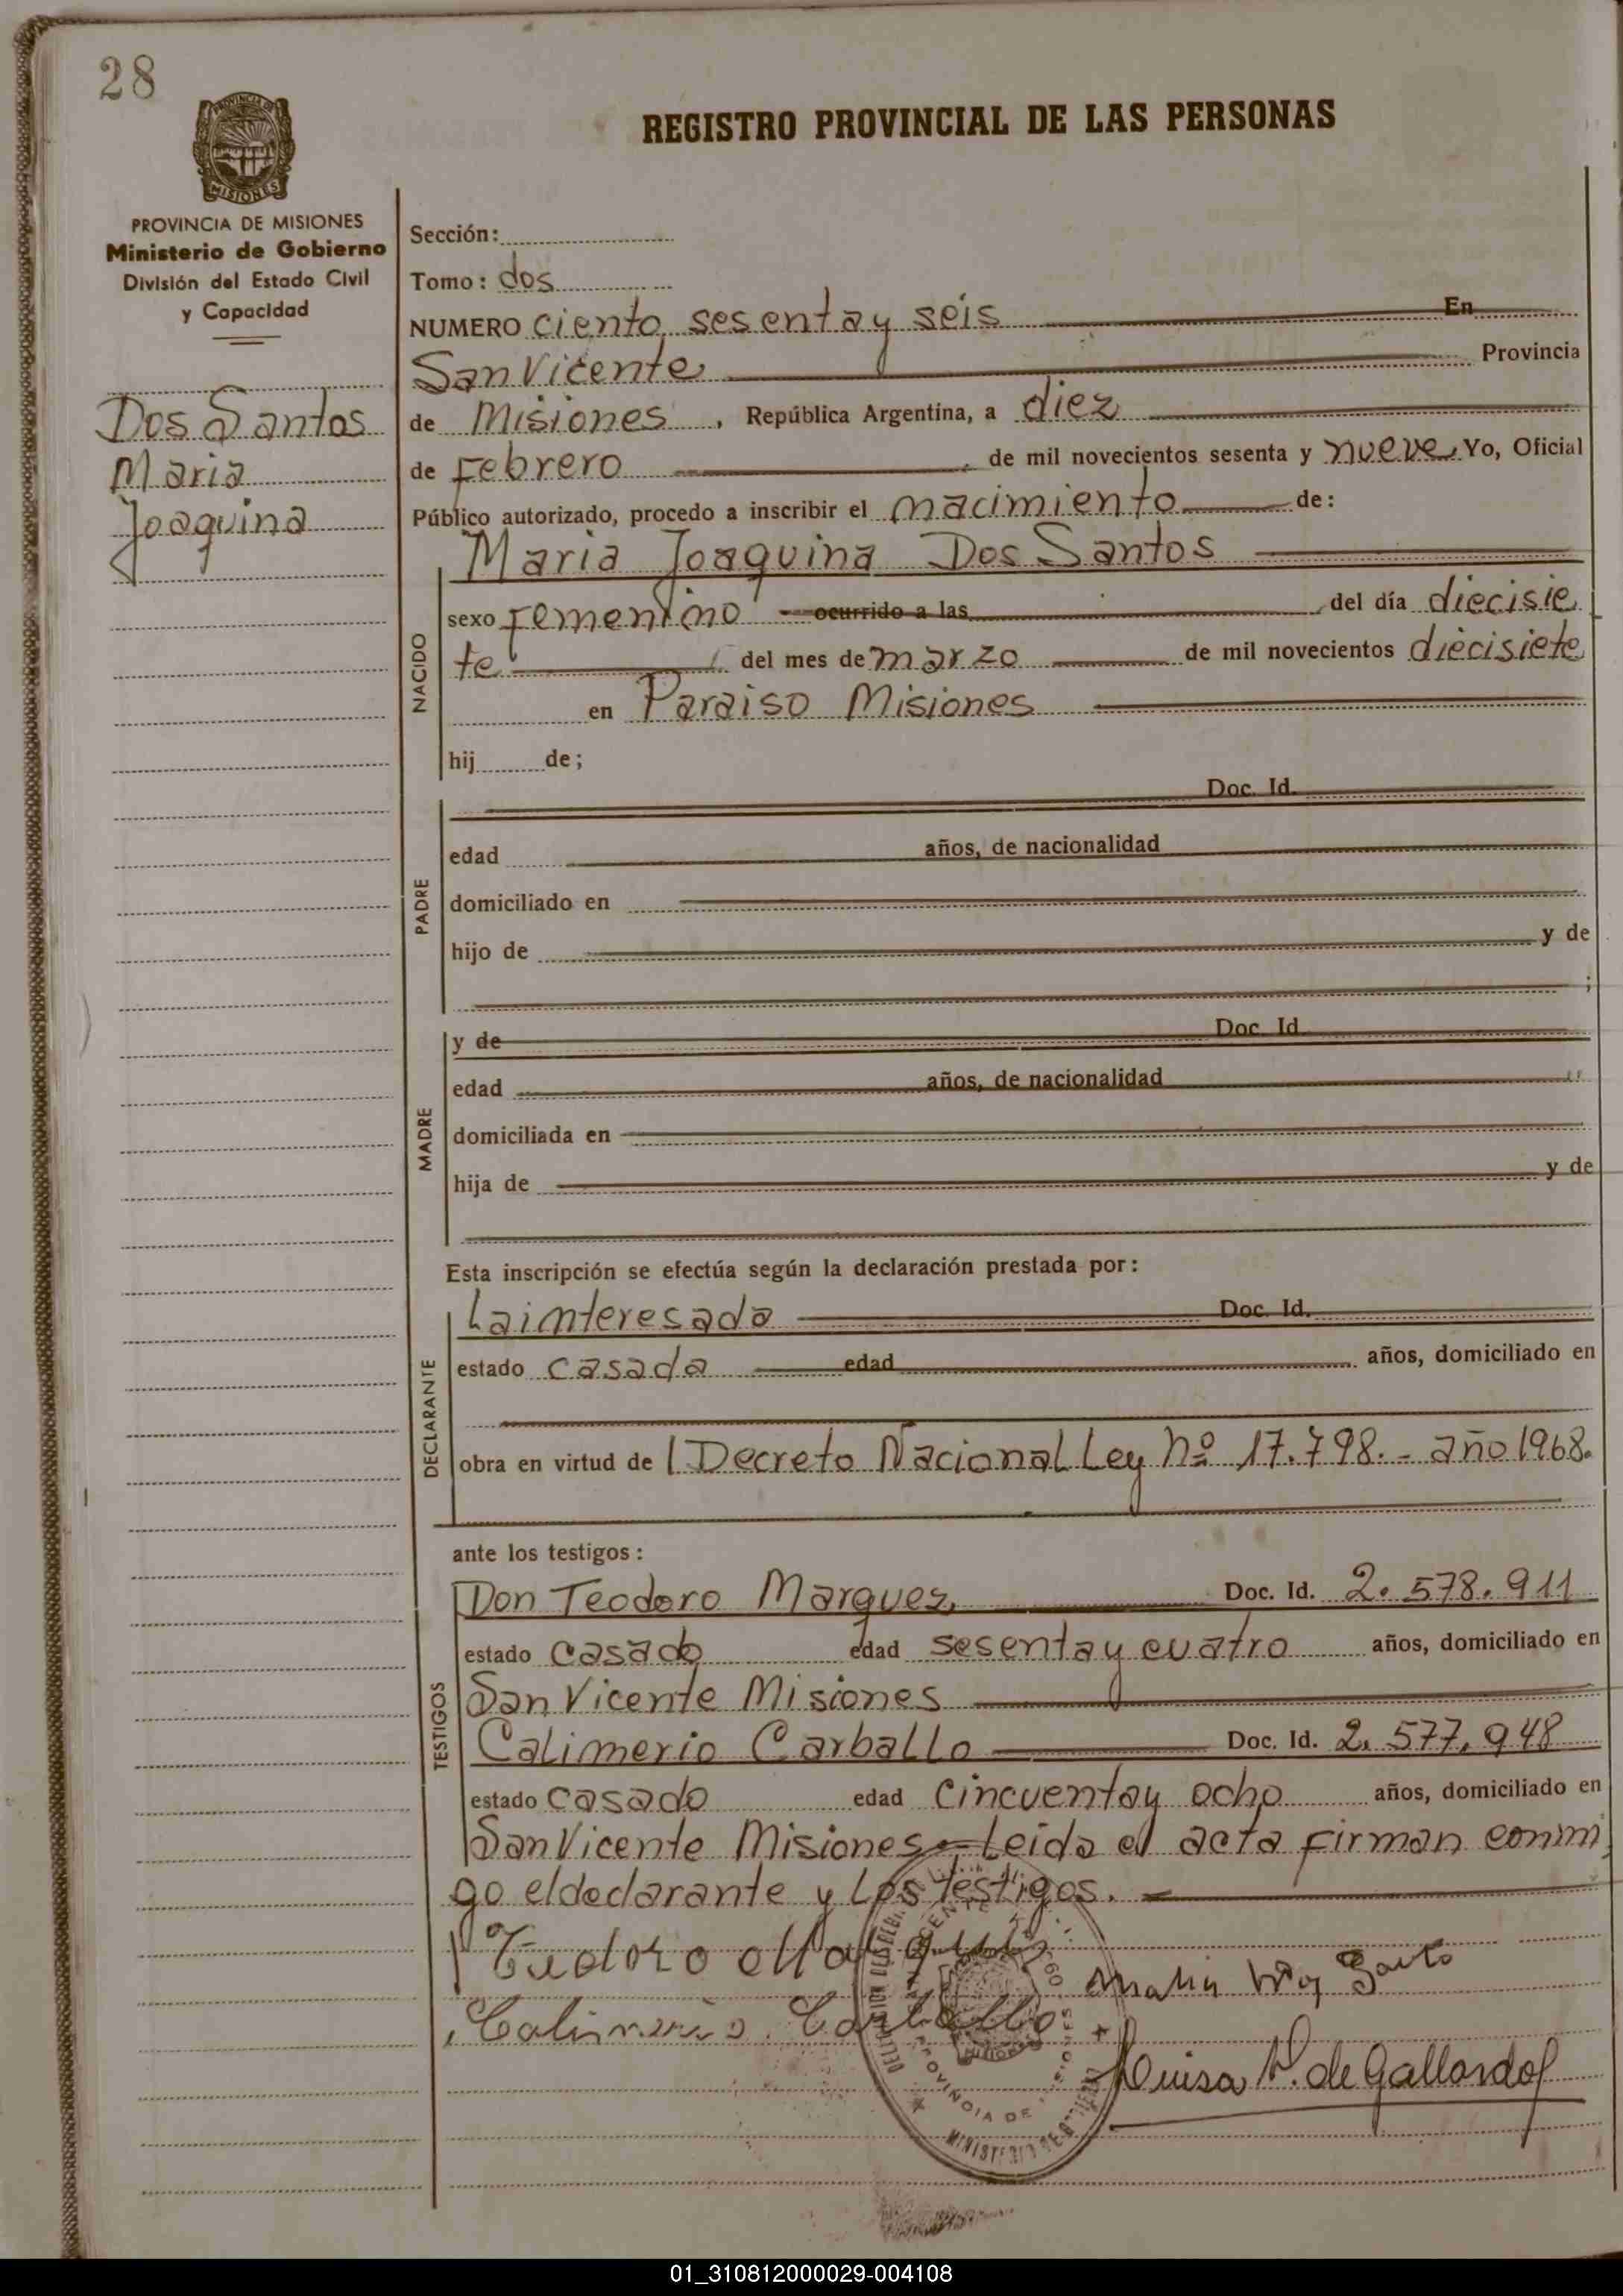 28
PROVINCIA DE
MISIONES
REGISTRO PROVINCIAL DE LAS PERSONAS
PROVINCIA DE MISIONES
Ministerio de Gobierno
División del Estado Civil
y Capacidad
Dos Santos
Maria
Joaquina
Sección:
Tomo: dos
NUMERO ciento sesenta y seis En
San Vicente Provincia
de Misiones, República Argentina, a diez
de Febrero de mil novecientos sesenta y nueve Yo, Oficial
Público autorizado, procedo a inscribir el nacimiento de:
Maria Joaquina Dos Santos
NACIDO
sexo Femenino ocurrido a las del día diecisie
te del mes de marzo de mil novecientos diecisiete
en Paraiso Misiones
hij de;
PADRE
Doc. Id.
edad años, de nacionalidad
domiciliado en
hijo de y de
;
MADRE
y de Doc. Id.
edad años, de nacionalidad
domiciliada en
hija de y de
Esta inscripción se efectúa según la declaración prestada por:
DECLARANTE
La interesada Doc. Id.
estado casada edad años, domiciliado en
obra en virtud de Decreto Nacional Ley Nº 17.798.- año 1968.
ante los testigos:
TESTIGOS
Don Teodoro Marquez Doc. Id. 2.578.911
estado casado edad sesenta y cuatro años, domiciliado en
San Vicente Misiones
Calimerio Carballo Doc. Id. 2.577.948
estado casado edad cincuenta y ocho años, domiciliado en
San Vicente Misiones - Leida el acta firman conmi
go el declarante y los testigos.
Calimerio Carballo
Luisa V. de Gallardo
PROVINCIA DE MISIONES
MINISTERIO DE GOBIERNO
01_310812000029-004108